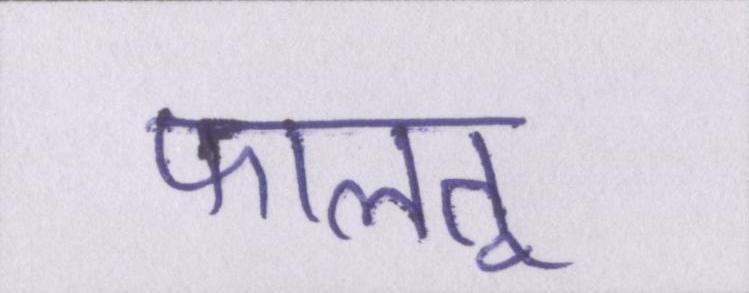 फालतू